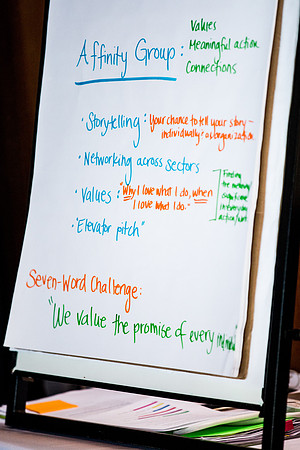 Affinity Group :
Values
Meaningful action
Connections
• Storytelling : Your chance to tell your story -
individually + as organization
• Networking across sectors
• Values : "Why I love what I do, when
I love what I do."
Finding
• "Elevator pitch"
Seven-Word Challenge:
"We value the promise of every individual"